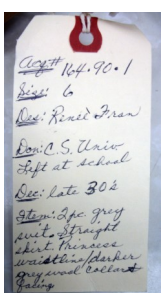 Acq# 164.90.1
Size: 6
Des: Reneé Fran
Don: C.S. Univ
Left at school
Dec: late 30's
Item: 2pc grey
suit. Straight
skirt. Princess
waistline/darker
grey wool collar &
facing